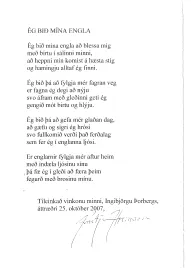 ÉG BIÐ MÍNA ENGLA
Ég bið mína engla að blessa mig
með birtu í sálinni minni,
að heppni mín komist á hæsta stig
og hamingju alltaf ég finni.
Ég bið þá að fylgja mér fagran veg
er fagna ég degi að nýju
svo áfram með gleðinni geti ég
gengið mót birtu og hlýju.
Ég bið þá að gefa mér glaðan dag,
að gæfu og sigri ég hrósi
svo fullkomið verði það ferðalag
sem fer ég í englanna ljósi.
Er englarnir fylgja mér aftur heim
með indæla ljósinu sínu
þá fæ ég í gleði að færa þeim
fegurð með brosinu mínu.
Tileinkað vinkonu minni, Ingibjörgu Þorbergs,
áttræðri 25. október 2007.